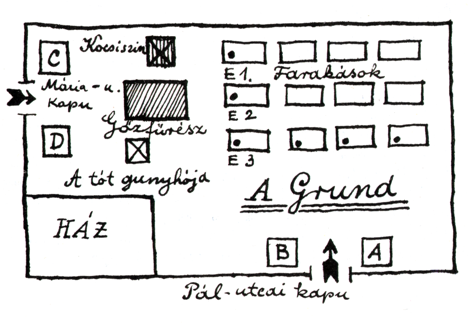 C
Kocsiszin
Mária-u.
kapu
Gőzfűrész
D
A tót gunyhója
HÁZ
E 1. Farakások
E 2
E 3
A Grund
B
A
Pál-utcai kapu